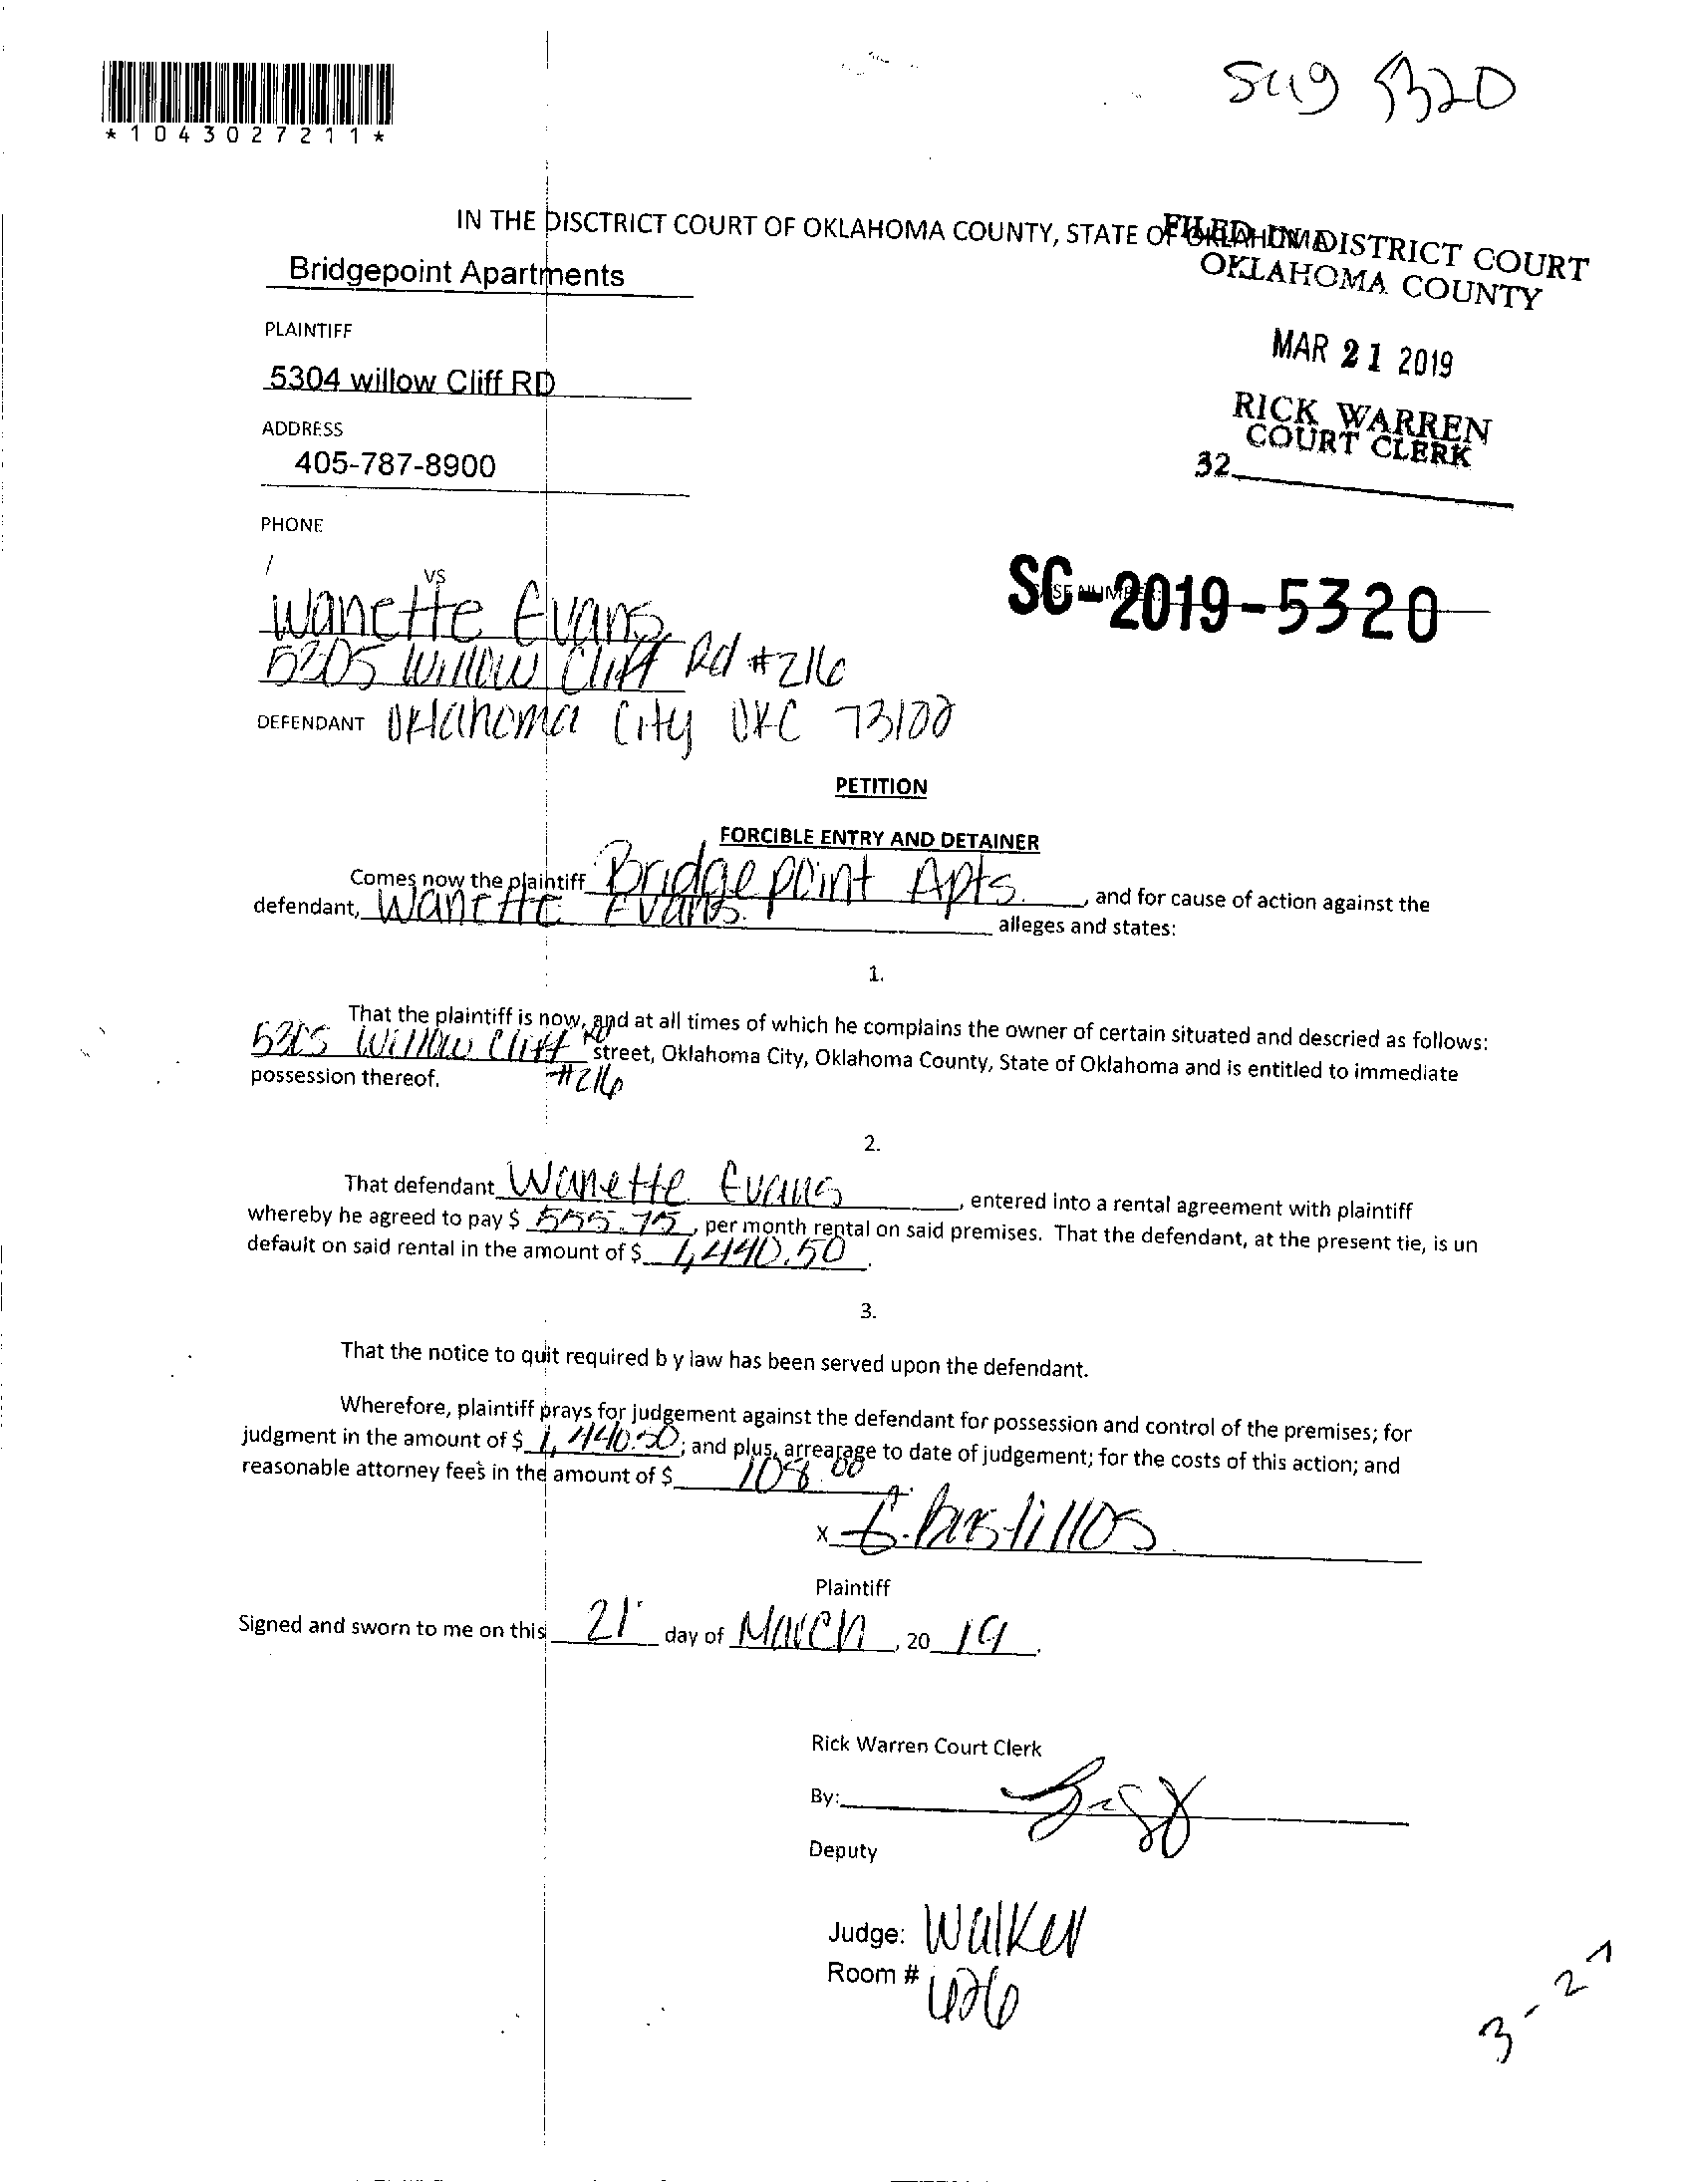 SC19 5320
*1043027211*
IN THE DISCTRICT COURT OF OKLAHOMA COUNTY, STATE OF OKLAHOMA
FILED IN DISTRICT COURT
OKLAHOMA COUNTY
Bridgepoint Apartments
PLAINTIFF
MAR 21 2019
5304 willow Cliff RD
RICK WARREN
COURT CLERK
ADDRESS
405-787-8900
32
PHONE
/
VS
CASE NUMBER:
SC-2019-5320
Wanette Evans
5305 Willow Cliff Rd #216
DEFENDANT Oklahoma City OKC
PETITION
FORCIBLE ENTRY AND DETAINER
Comes now the plaintiff Bridgepoint Apts. , and for cause of action against the
defendant, Wanette Evans. alleges and states:
1.
That the plaintiff is now, and at all times of which he complains the owner of certain situated and descried as follows:
5305 Willow Cliff Rd street, Oklahoma City, Oklahoma County, State of Oklahoma and is entitled to immediate
possession thereof. #216
2.
That defendant Wanette Evans , entered into a rental agreement with plaintiff
whereby he agreed to pay $ 555.75 , per month rental on said premises. That the defendant, at the present tie, is un
default on said rental in the amount of $ 1,440.50 .
3.
That the notice to quit required b y law has been served upon the defendant.
Wherefore, plaintiff prays for judgement against the defendant for possession and control of the premises; for
judgment in the amount of $ 1,440.50 ; and plus, arrearage to date of judgement; for the costs of this action; and
reasonable attorney fee's in the amount of $ 108.00 .
x
Plaintiff
Signed and sworn to me on this 21 day of March , 20 19 .
Rick Warren Court Clerk
By:
Deputy
Judge: Walker
Room # 626
3-21